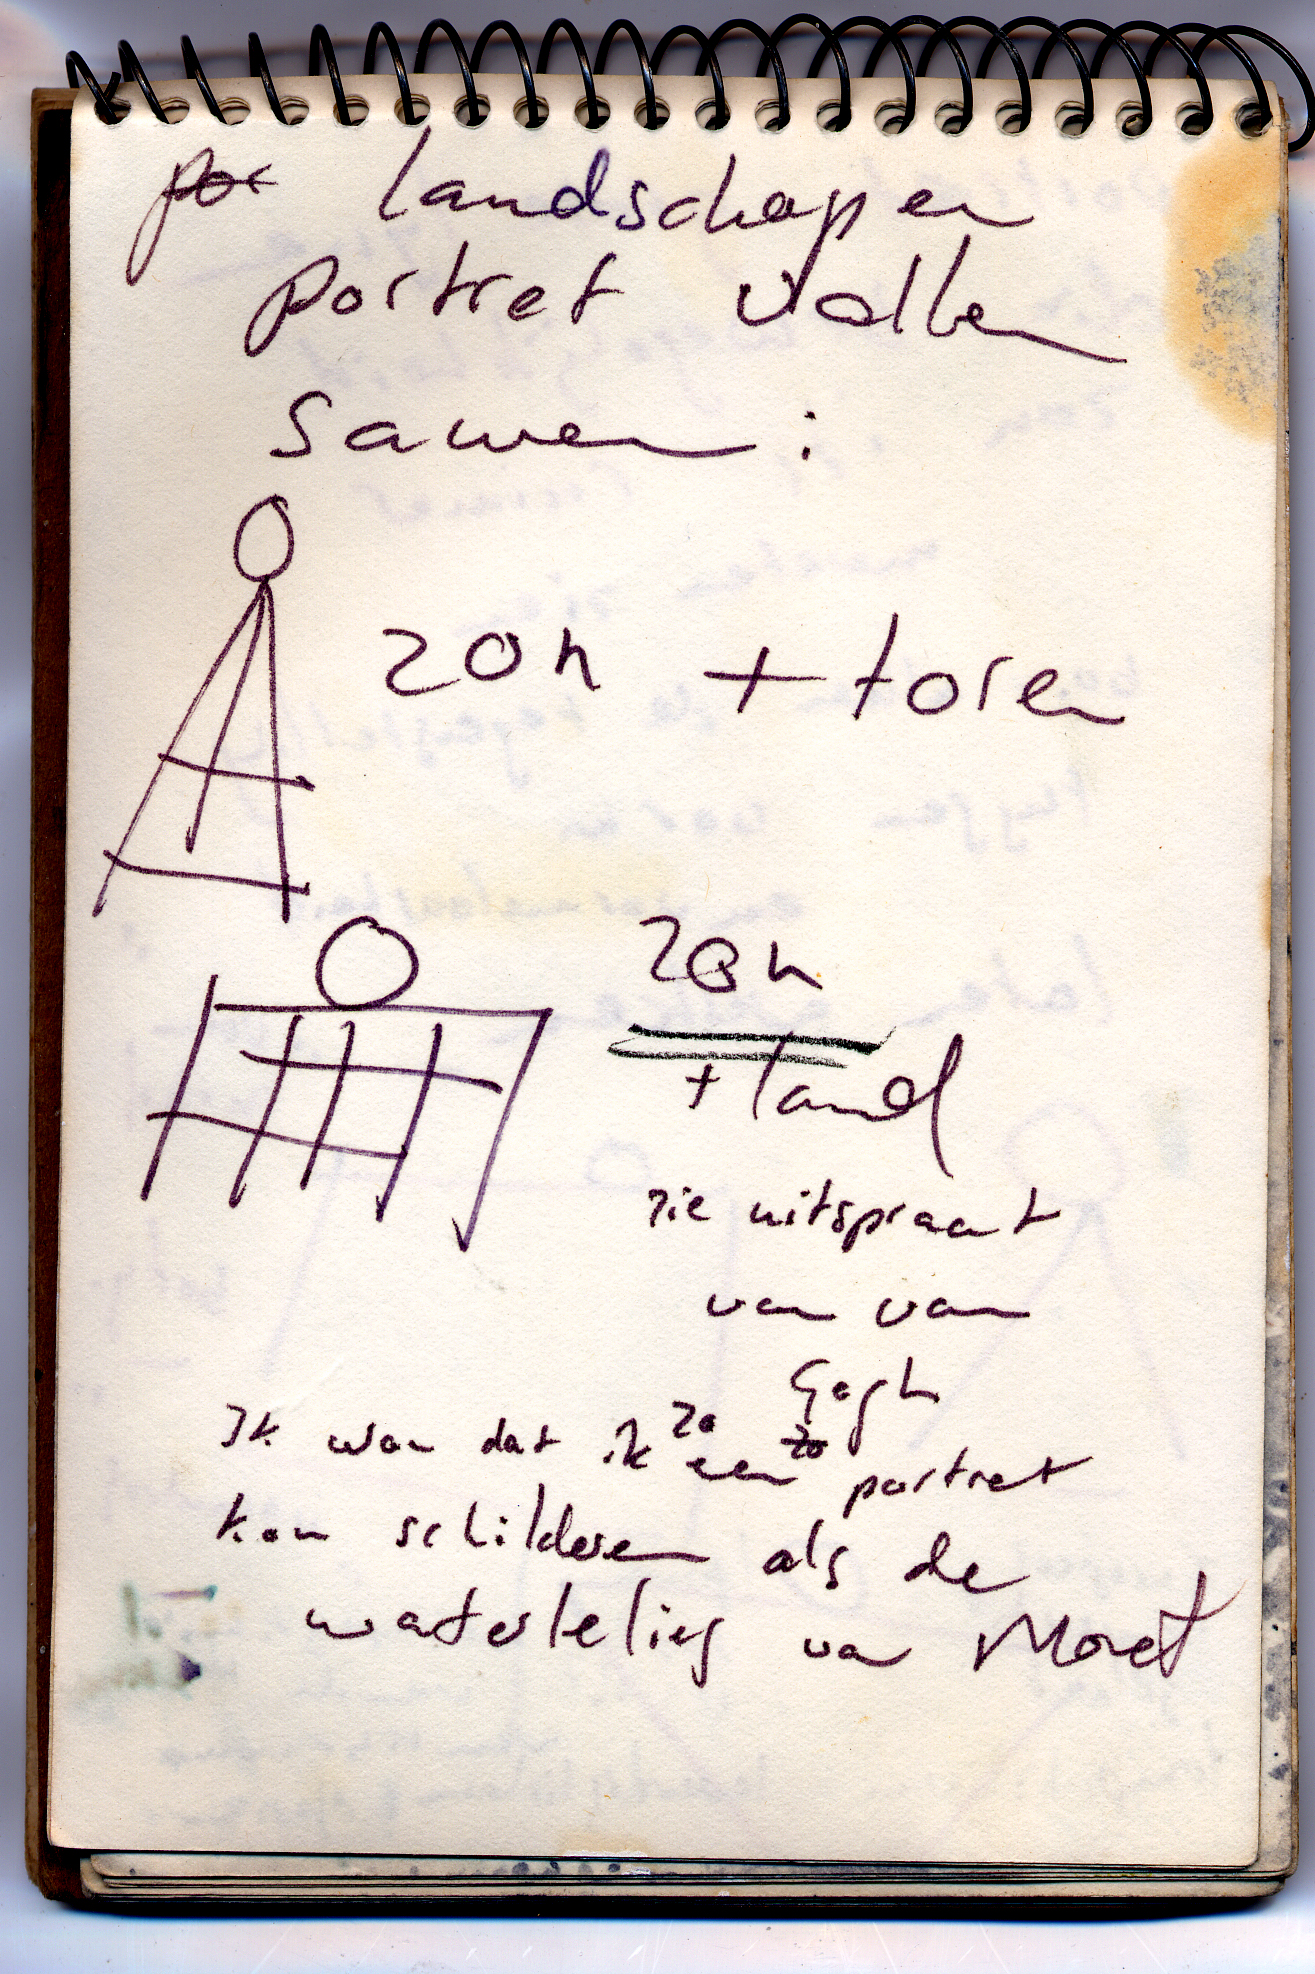 por landschapen
portret vallen
samen :
zon + toren
zon
+ land
zie uitspraak
van van
Gogh
Ik wou dat ik zo een zo portret
kon schilderen als de
waterlelies van Monet